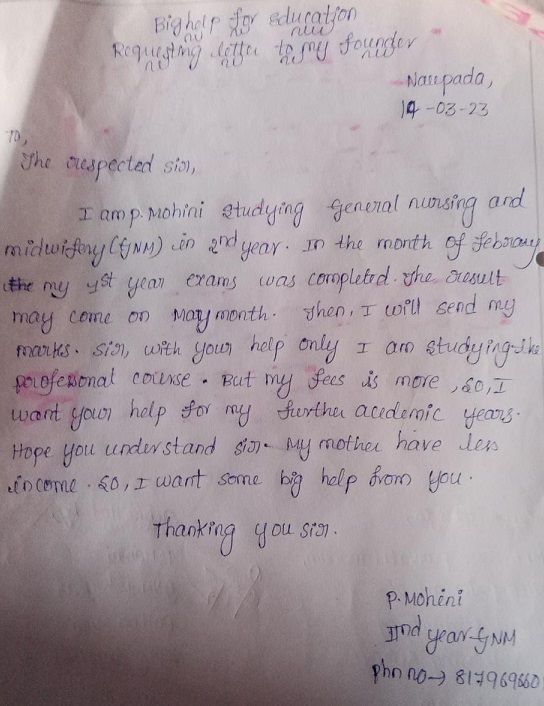 Big help for education
Requesting letter to my founder
Naupada,
14-03-23
To,
The respected sir,
I am p. Mohini studying General nursing and
midwifery (GNM) in 2nd year. In the month of febraray
the my 1st year exams was completed. The result
may come on May month. Then, I will send my
marks. Sir, with your help only I am studying the
profesonal course. But my fees is more, so, I
want your help for my further acedemic years.
Hope you understand sir. My mother have less
income. so, I want some big help from you.
Thanking you sir.
P. Mohini
IInd year GNM
phn no→ 817969660